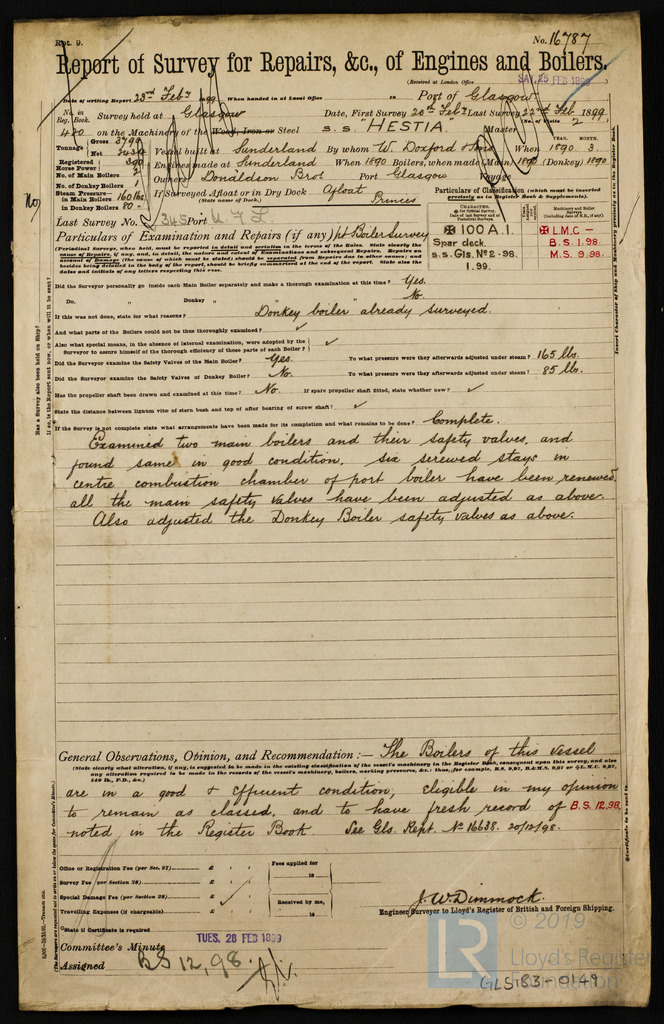 Rpt. 9.
No. 16787
Report of Survey for Repairs, &c., of Engines and Boilers.
(Received at London Office SAT. 25 FEB 1899
Date of writing Report 23rd Feby 1899 When handed in at Local Office Port of Glasgow
No. in Reg. Book. Survey held at Glasgow Date, First Survey 20th Feby Last Survey 22nd Feb 1899
420 on the Machinery of the Wood, Iron or Steel S.S. "HESTIA" Master No. of Visits 2
Tonnage Gross 3790 Net 2434 Vessel built at Sunderland By whom W. Doxford & Sons When 1890 YEAR. MONTH. 3
Registered Horse Power 390 Engines made at Sunderland When 1890 Boilers, when made (Main) 1890 (Donkey) 1890
No. of Main Boilers 2 Owners Donaldson Bros Port Glasgow Voyage
No. of Donkey Boilers 1
Steam Pressure— in Main Boilers 160 lbs If Surveyed Afloat or in Dry Dock Afloat Princes
in Donkey Boilers 80 (State name of Dock.)
Last Survey No. Port
Particulars of Classification (which must be inserted precisely as in Register Book & Supplements).
Particulars of Examination and Repairs (if any) pt Boiler Survey
✠ 100 A.1.
Spar deck.
S.S. Gls. No 2-98.
1.99.
✠ L.M.C –
B.S. 1.98.
M.S. 9.98.
Did the Surveyor personally go inside each Main Boiler separately and make a thorough examination at this time? Yes.
Do. " Donkey " " " No.
If this was not done, state for what reasons? Donkey boiler already surveyed.
And what parts of the Boilers could not be thus thoroughly examined? ✓
Also what special means, in the absence of internal examination, were adopted by the Surveyor to assure himself of the thorough efficiency of those parts of each Boiler? ✓
Did the Surveyor examine the Safety Valves of the Main Boiler? Yes. To what pressure were they afterwards adjusted under steam? 165 lbs.
Did the Surveyor examine the Safety Valves of Donkey Boiler? No. To what pressure were they afterwards adjusted under steam? 85 lbs.
Has the propeller shaft been drawn and examined at this time? No. If spare propeller shaft fitted, state whether new? ✓
State the distance between lignum vitæ of stern bush and top of after bearing of screw shaft? ✓
If the Survey is not complete state what arrangements have been made for its completion and what remains to be done? Complete.
Examined two main boilers and their safety valves, and
found same in good condition, six screwed stays in
centre combustion chamber of port boiler have been renewed,
all the main safety valves have been adjusted as above.
Also adjusted the Donkey Boiler safety valves as above.
General Observations, Opinion, and Recommendation:— The Boilers of this vessel
are in a good & efficient condition, eligible in my opinion
to remain as classed, and to have fresh record of B.S. 12.98.
noted in the Register Book. See Gls. Rept. No 16638. 20/12/98.
Office or Registration Fee (per Sec. 27) £ : : Fees applied for
18
Survey Fee (per Section 28) £ : :
Special Damage Fee (per Section 28) £ : : Received by me,
Travelling Expenses (if chargeable) £ : : 18
State if Certificate is required
J. W. Dimmock.
Engineer Surveyor to Lloyd's Register of British and Foreign Shipping.
Committee's Minute TUES. 28 FEB 1899
Assigned BS 12,98.
© 2019
LR
Lloyd's Register
Foundation
GLS183-0149